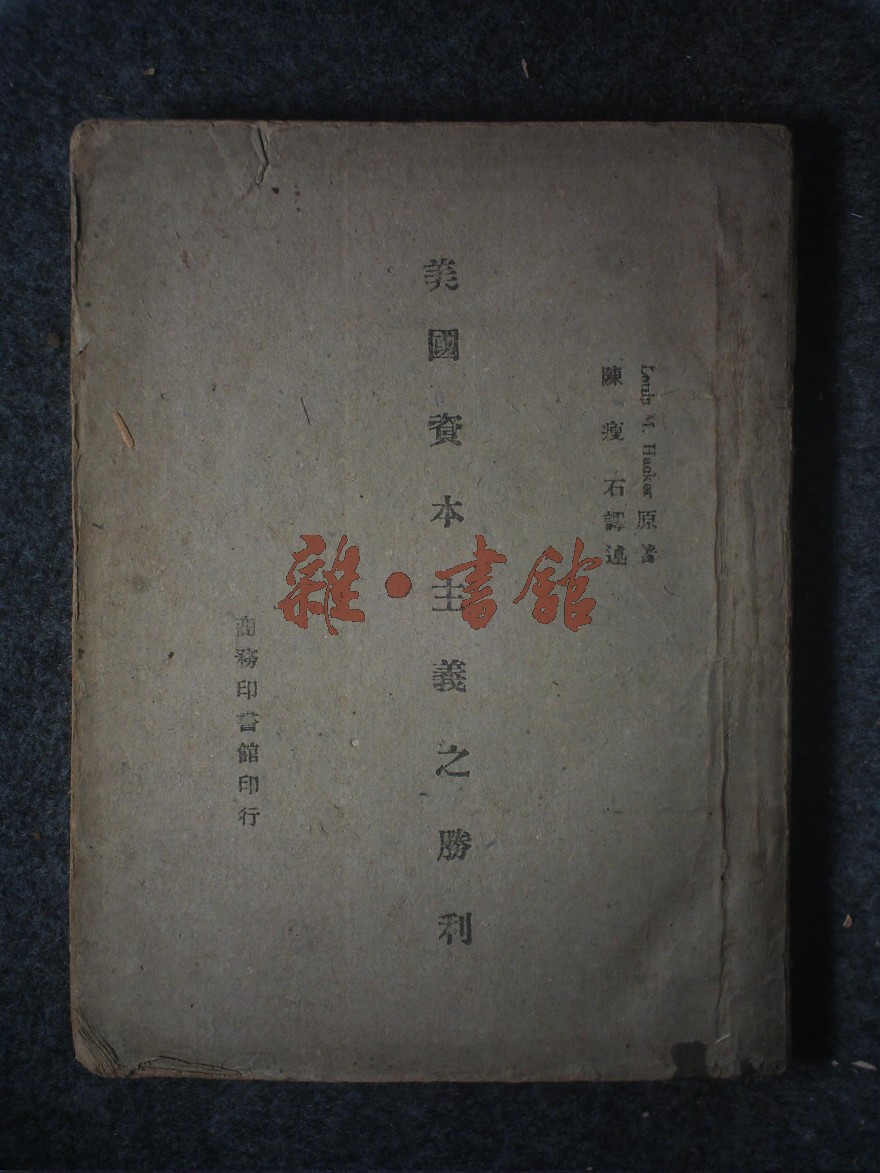 Louis M. Hacker 原著
陳瘦石譯述
美國資本主義之勝利
商務印書館印行
雜·書館